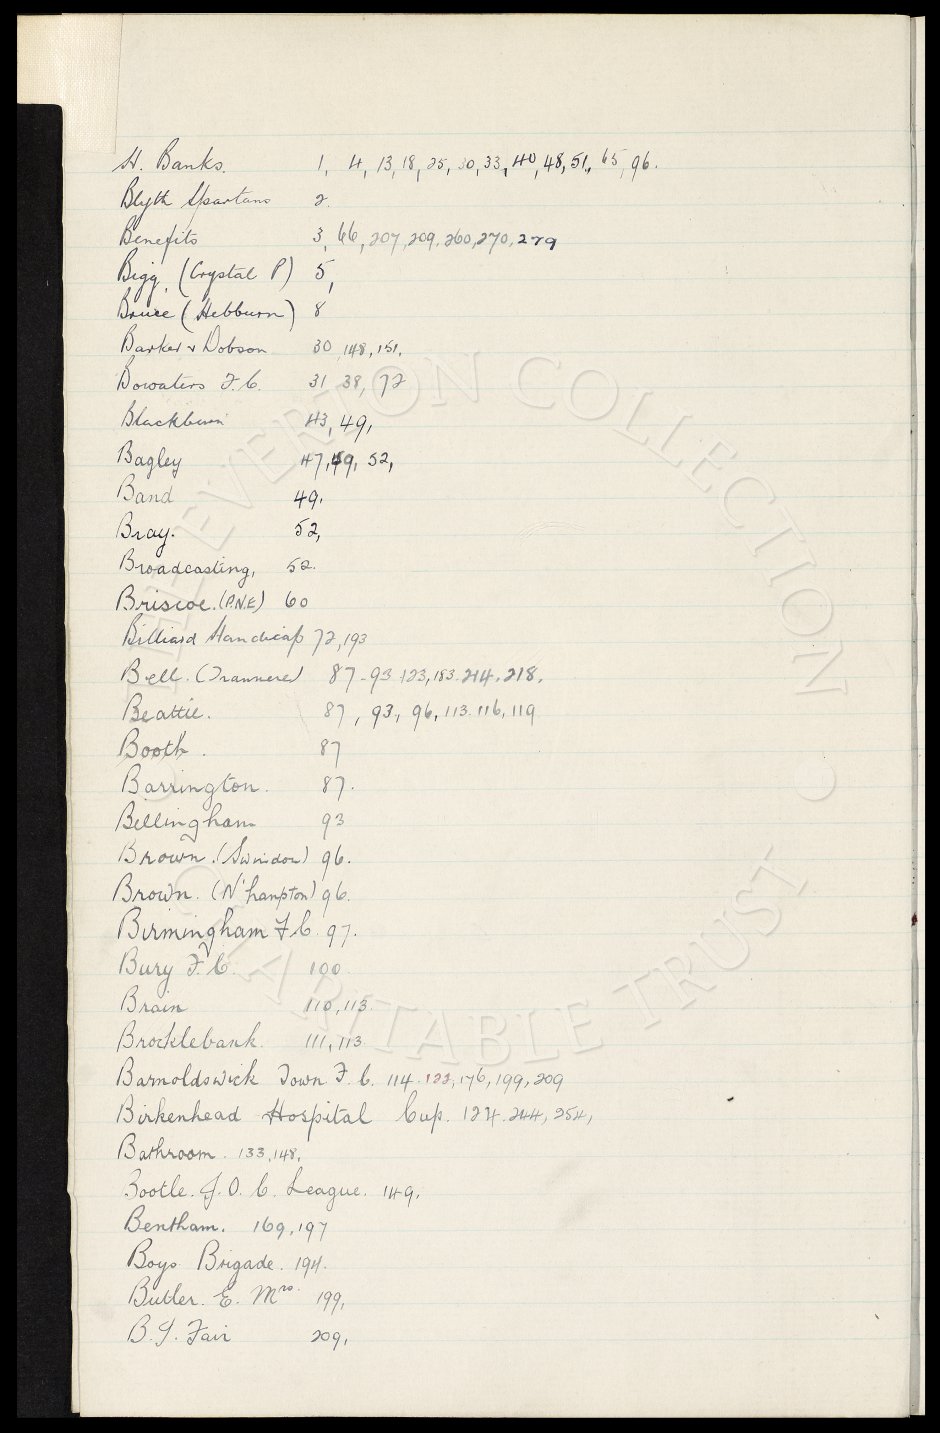 H. Banks. 1, 4, 13, 18, 25, 30, 33, 40, 48, 51, 65, 96.
Blyth Spartans 2.
Benefits 3, 66, 207, 209, 260, 270, 279
Bigg. (Crystal P) 5,
Bruce (Hebburn) 8
Barker & Dobson 30, 148, 151,
Bowaters F.C. 31 38, 72
Blackburn 43, 49,
Bagley 47, 49, 52,
Band 49,
Bray. 52,
Broadcasting, 52.
Briscoe. (P.N.E) 60
Billiard Handicap 72, 193
Bell. (Tranmere) 87-93. 123, 183. 214. 218.
Beattie. 87, 93, 96, 113. 116, 119
Booth. 87
Barrington. 87.
Billingham 93
Brown. (Swindon) 96.
Brown. (N'hampton) 96.
Birmingham F.C. 97.
Bury F.C. 100.
Brain 110, 113.
Brocklebank 111, 113
Barnoldswick Town F.C. 114. 122, 176, 199, 209
Birkenhead Hospital Cup. 124. 244, 254,
Bathroom. 133, 148,
Bootle. J.O.C. League. 149,
Bentham. 169, 197
Boys Brigade. 194.
Butler. E. Mrs. 199,
B.I. Fair 209,
EVERTON COLLECTION
CHARITABLE TRUST